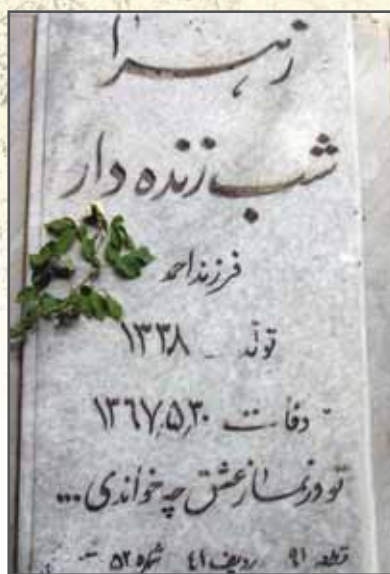 زهرا
شب زنده دار
فرزند احمد
تولد - ۱۳۳۸
وفات ۱۳۶۷,۵,۳۰
تو در نماز عشق چه خواندی...
قطعه ۹۱ ردیف ٤١ شماره ۵۲